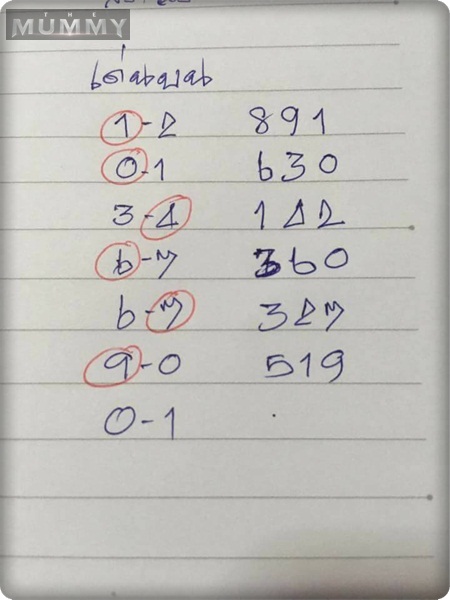 THE
MUMMY
เด่นบน
1-2 891
0-1 630
3-4 142
6-7 360
6-7 327
9-0 519
0-1